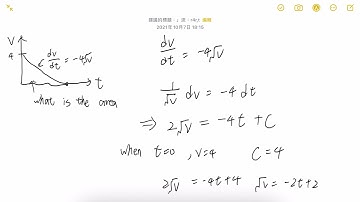 2021年10月7日 18:15
V
4
dv/dt = -4√v
t
what is the area
dv/dt = -4√v
1/√v dv = -4 dt
⇒ 2√v = -4t + C
when t=0 , v=4 C=4
2√v = -4t+4 √v = -2t+2